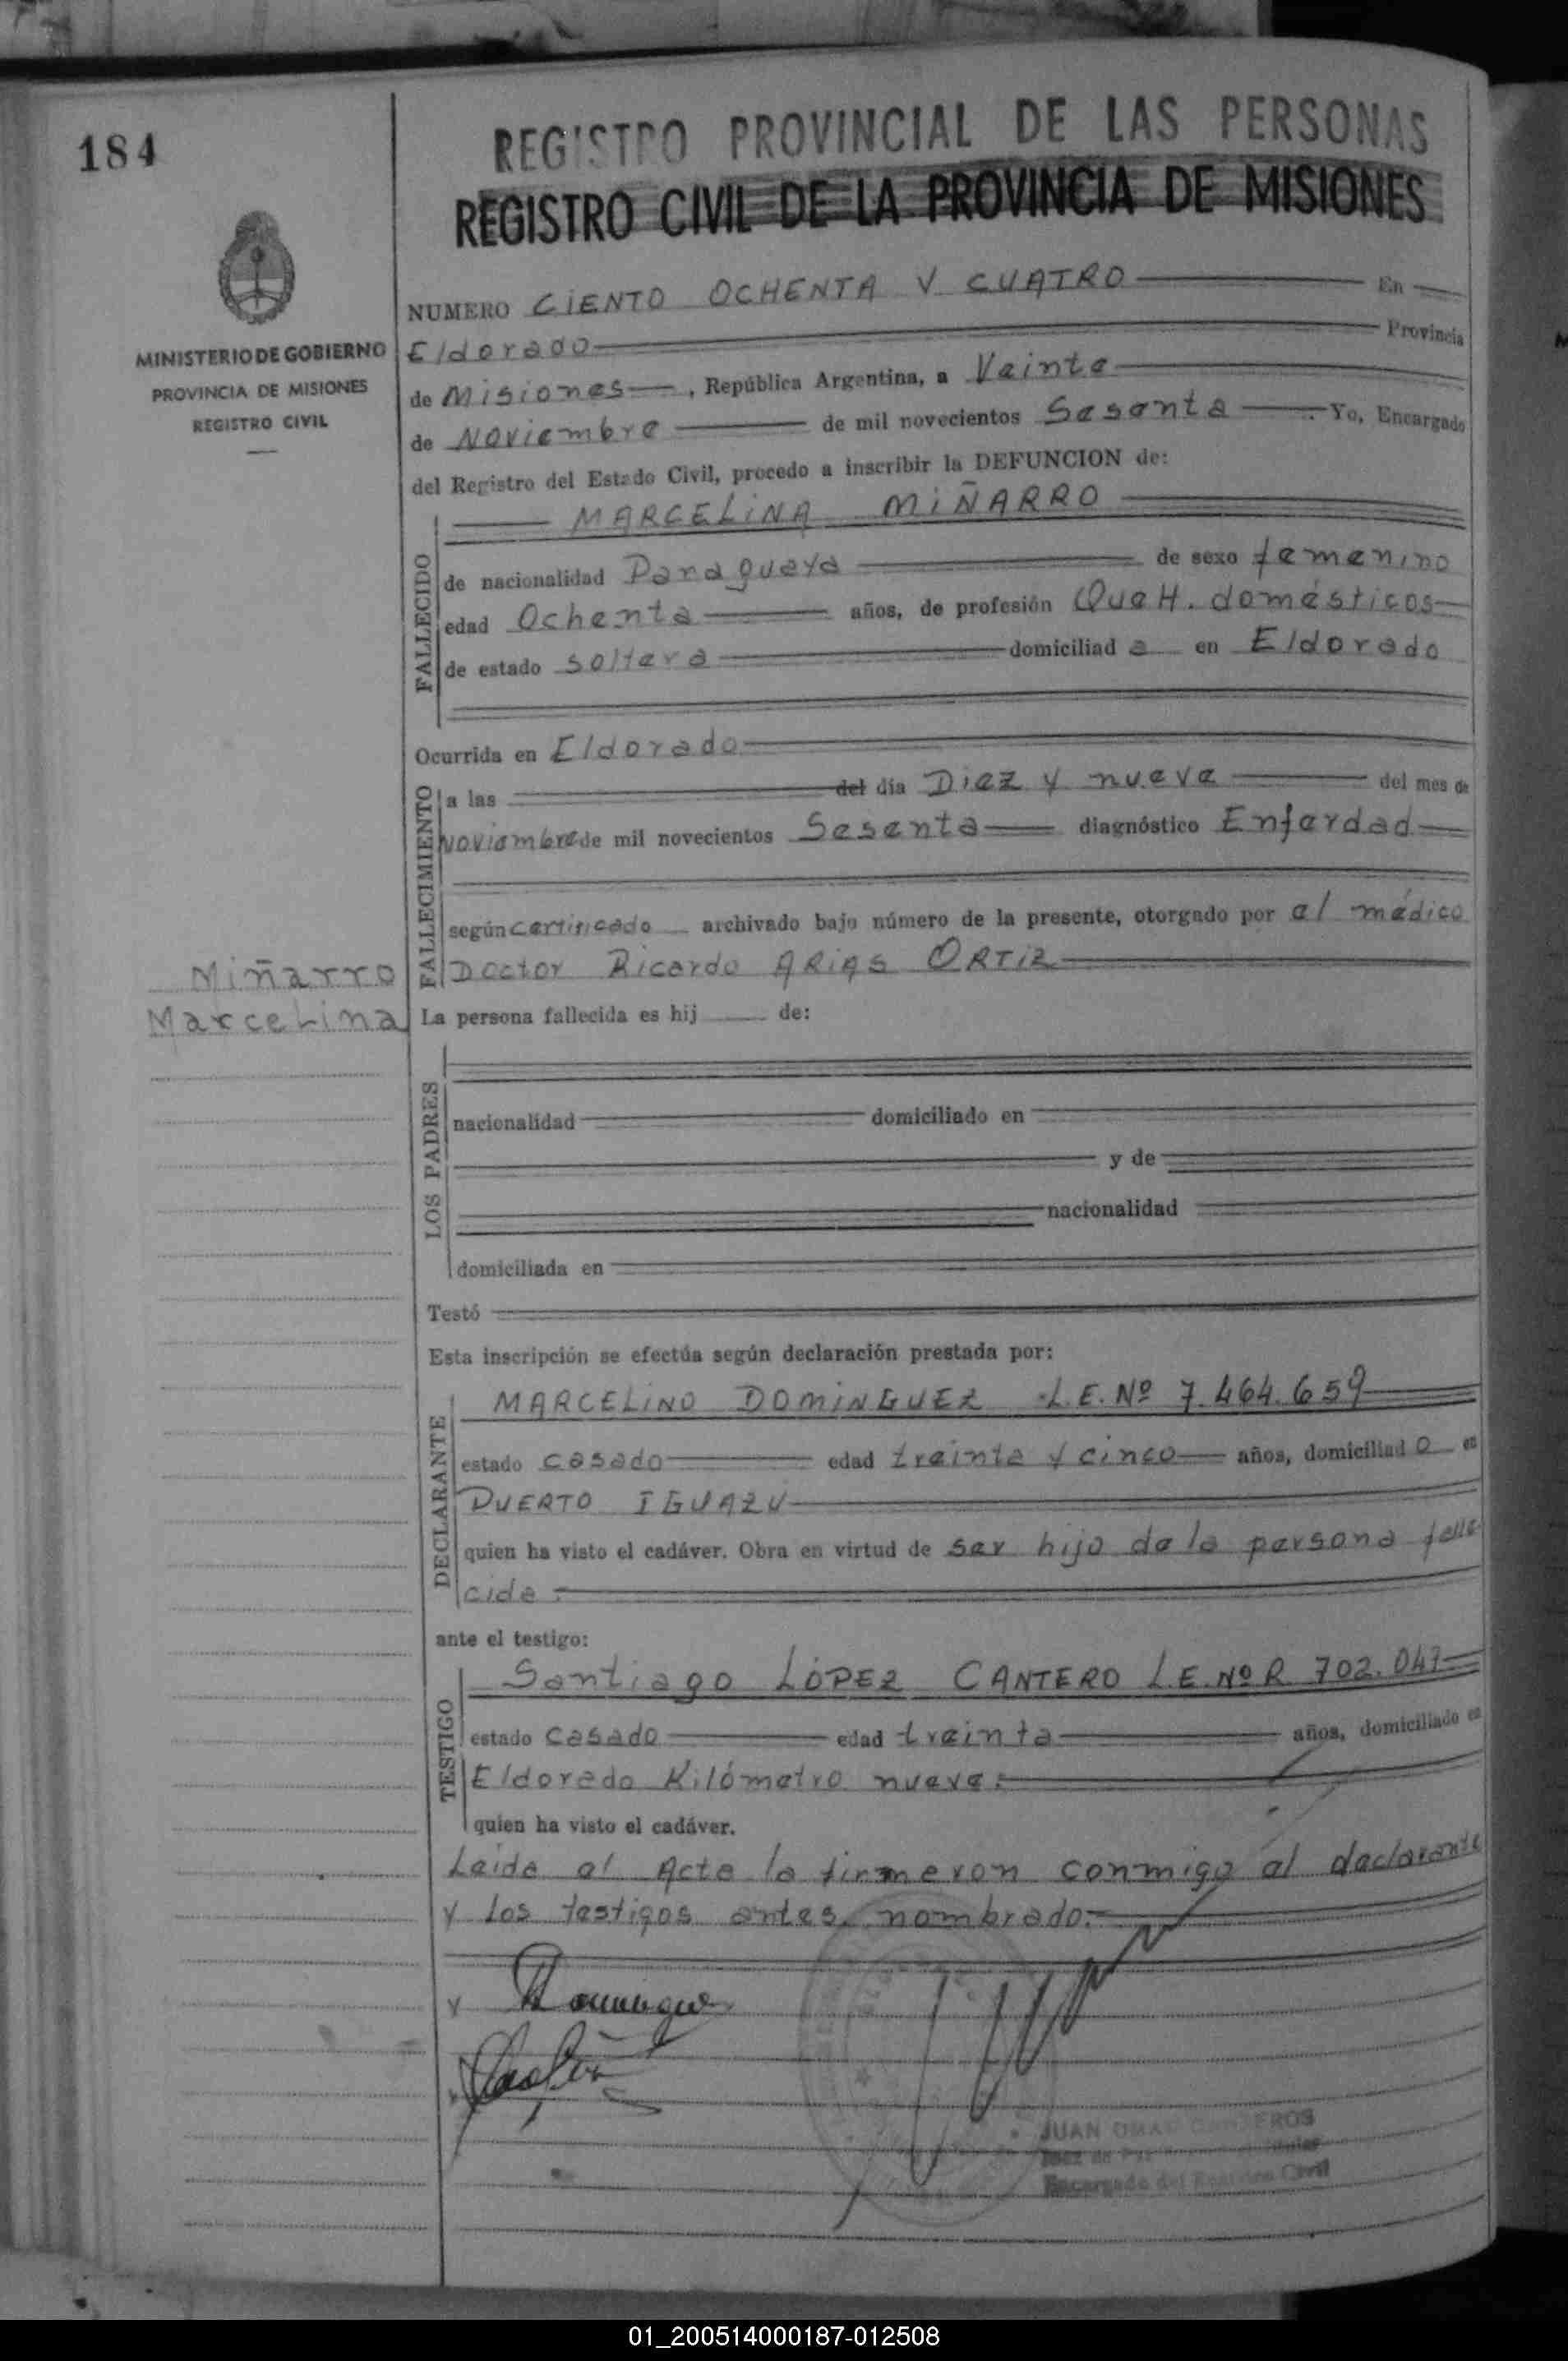 184
REGISTRO PROVINCIAL DE LAS PERSONAS
REGISTRO CIVIL DE LA PROVINCIA DE MISIONES
MINISTERIO DE GOBIERNO
PROVINCIA DE MISIONES
REGISTRO CIVIL
NUMERO CIENTO OCHENTA Y CUATRO En
Eldorado Provincia
de Misiones , República Argentina, a Veinte
de Noviembre de mil novecientos Sesenta . Yo, Encargado
del Registro del Estado Civil, procedo a inscribir la DEFUNCION de:
MARCELINA MIÑARRO
FALLECIDO
de nacionalidad Paraguaya de sexo femenino
edad Ochenta años, de profesión QueH. domésticos
de estado soltera domiciliad a en Eldorado
Ocurrida en Eldorado
FALLECIMIENTO
a las del día Diez y nueve del mes de
Noviembre de mil novecientos Sesenta diagnóstico Enferdad
según certificado archivado bajo número de la presente, otorgado por el médico
Doctor Ricardo ARIAS ORTIZ
Miñarro
Marcelina
La persona fallecida es hij de:
LOS PADRES
nacionalidad domiciliado en
y de
nacionalidad
domiciliada en
Testó
Esta inscripción se efectúa según declaración prestada por:
DECLARANTE
MARCELINO DOMINGUEZ L.E. Nº 7.464.659
estado casado edad treinta y cinco años, domiciliad o en
PUERTO IGUAZU
quien ha visto el cadáver. Obra en virtud de ser hijo de la persona falle
cida
ante el testigo:
TESTIGO
Santiago LÓPEZ CANTERO L.E. Nº R 702.047
estado casado edad treinta años, domiciliado en
Eldorado Kilómetro nueve.
quien ha visto el cadáver.
Leída el Acta la firmaron conmigo el declarante
y los testigos antes nombrado.
Dominguez
JUAN OMAR CANTEROS
Encargado del Registro Civil
01_200514000187-012508